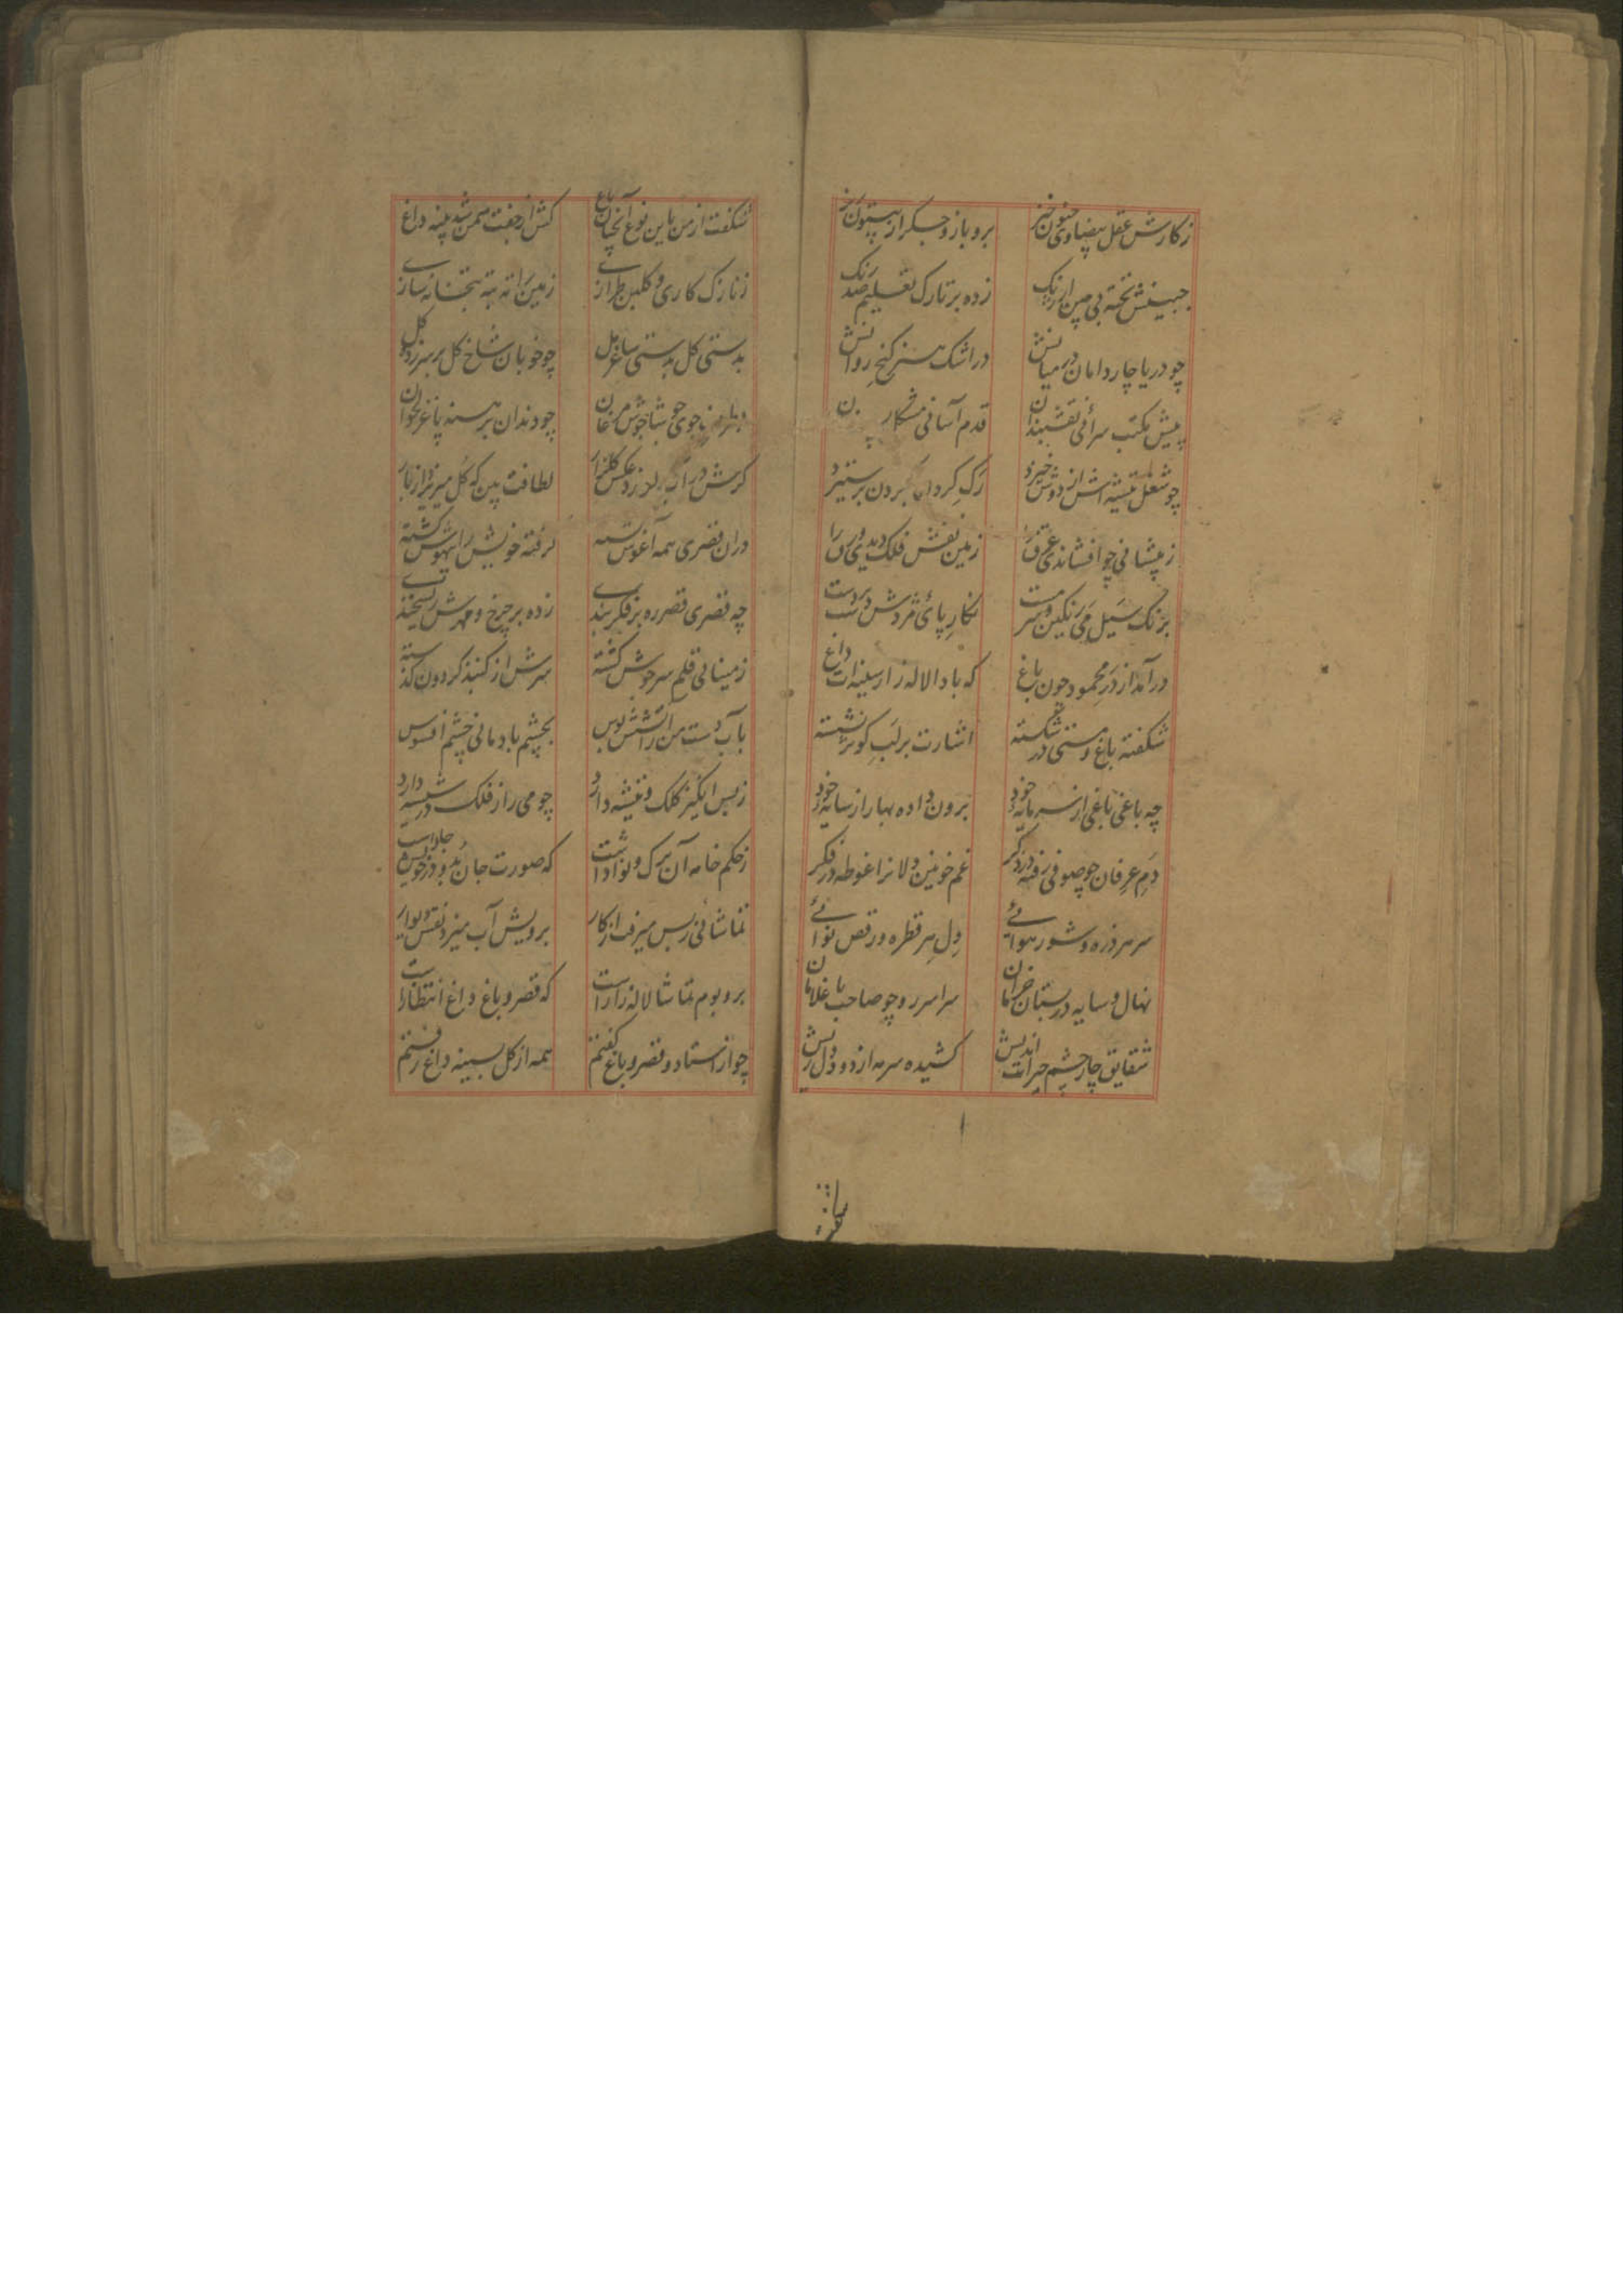 زکارش عقل بیضاوی جنون خیز
برو بازو جگر از بیستون نیز
جبینش تخته بی چین ارژنگ
زده بر تارک تعلیم صد رنگ
چو دریا چار دامان در میانش
در اشک هنر کنج روانش
پیش مکتب سرائی نقشبندان
قدم آسانی مشکل
چو شغل تیشه اش از دوش خیزد
رک کردان کردن بر ستیزد
ز پیشانی چو افشاندی عرق را
زمین نقش فلک دیدی ورق را
برنگ سیل می رنگین و سرمست
نگار پای مزدش دست بر دست
درآمد از در محمود چون باغ
که بادا لاله زار سینه ات داغ
شکفته باغ و مستی در شکسته
اشارت بر لب کوثر نشسته
چه باغی باغی از سرمایه خود
برون داده بهار از سایه خود
دم عرفان چو صوفی رفته در ذکر
غم خونین دلانرا غوطه در فکر
سر هر ذره و شور هوائے
دل هر قطره و رقص نوائے
نهال و سایه در بستان خرامان
سراسر رو چو صاحب با غلامان
شقایق چار چشم حیرت اندیش
کشیده سرمه از دود دل ریش
شکفت از من باین نوع آنچنان باغ
کش از جفت سمن شد پنبه داغ
ز نازک کاری و گلبن طرازے
زمین را ته بته بتخانه سازے
بدستی گل بدستی ساغر مل
چو خوبان شاخ گل بر سر زده گل
جوی شاجوش مرغان
چو دندان بر سنه پا غرلخوان
گرش در آب لغزد عکس گلزار
لطافت بین که گل میریزد از بار
دران قصری همه آغوش بسته
گرفته خویش را بیهوش گشته
چه قصری قصر ره بر فکر بندے
زده بر چرخ و مهرش ریشخندے
ز مینائی قلم سرخوش گشته
سرش از گنبد گردون گذشته
بآب دست من را آتشش بوس
بچشم باد مانی چشم افسوس
ز بس انگیز کلک و تیشه دارد
چو می راز فلک در شیشه دارد
ز حکم خامه آن برک و نوا داشت
که صورت جان بد و در خویش جا داشت
تماشائی ز بس میرفت از کار
برویش آب میزد نقش دیوار
بر و بوم تماشا لاله زار است
که قصر و باغ داغ انتظار است
چو از استاد و قصر و باغ گفتم
همه از گل بسینه داغ رفتم